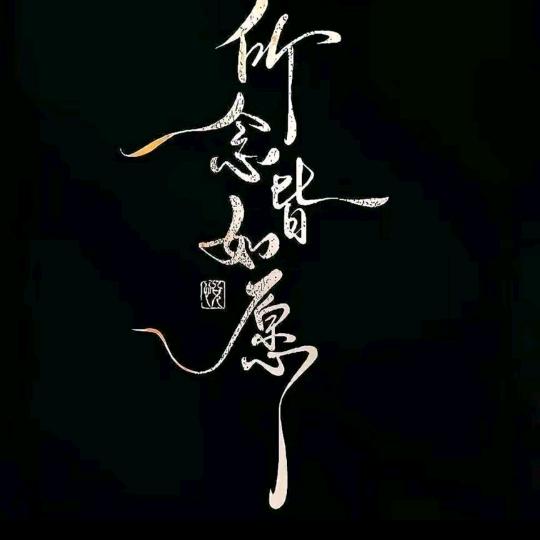 所念皆如愿
悦